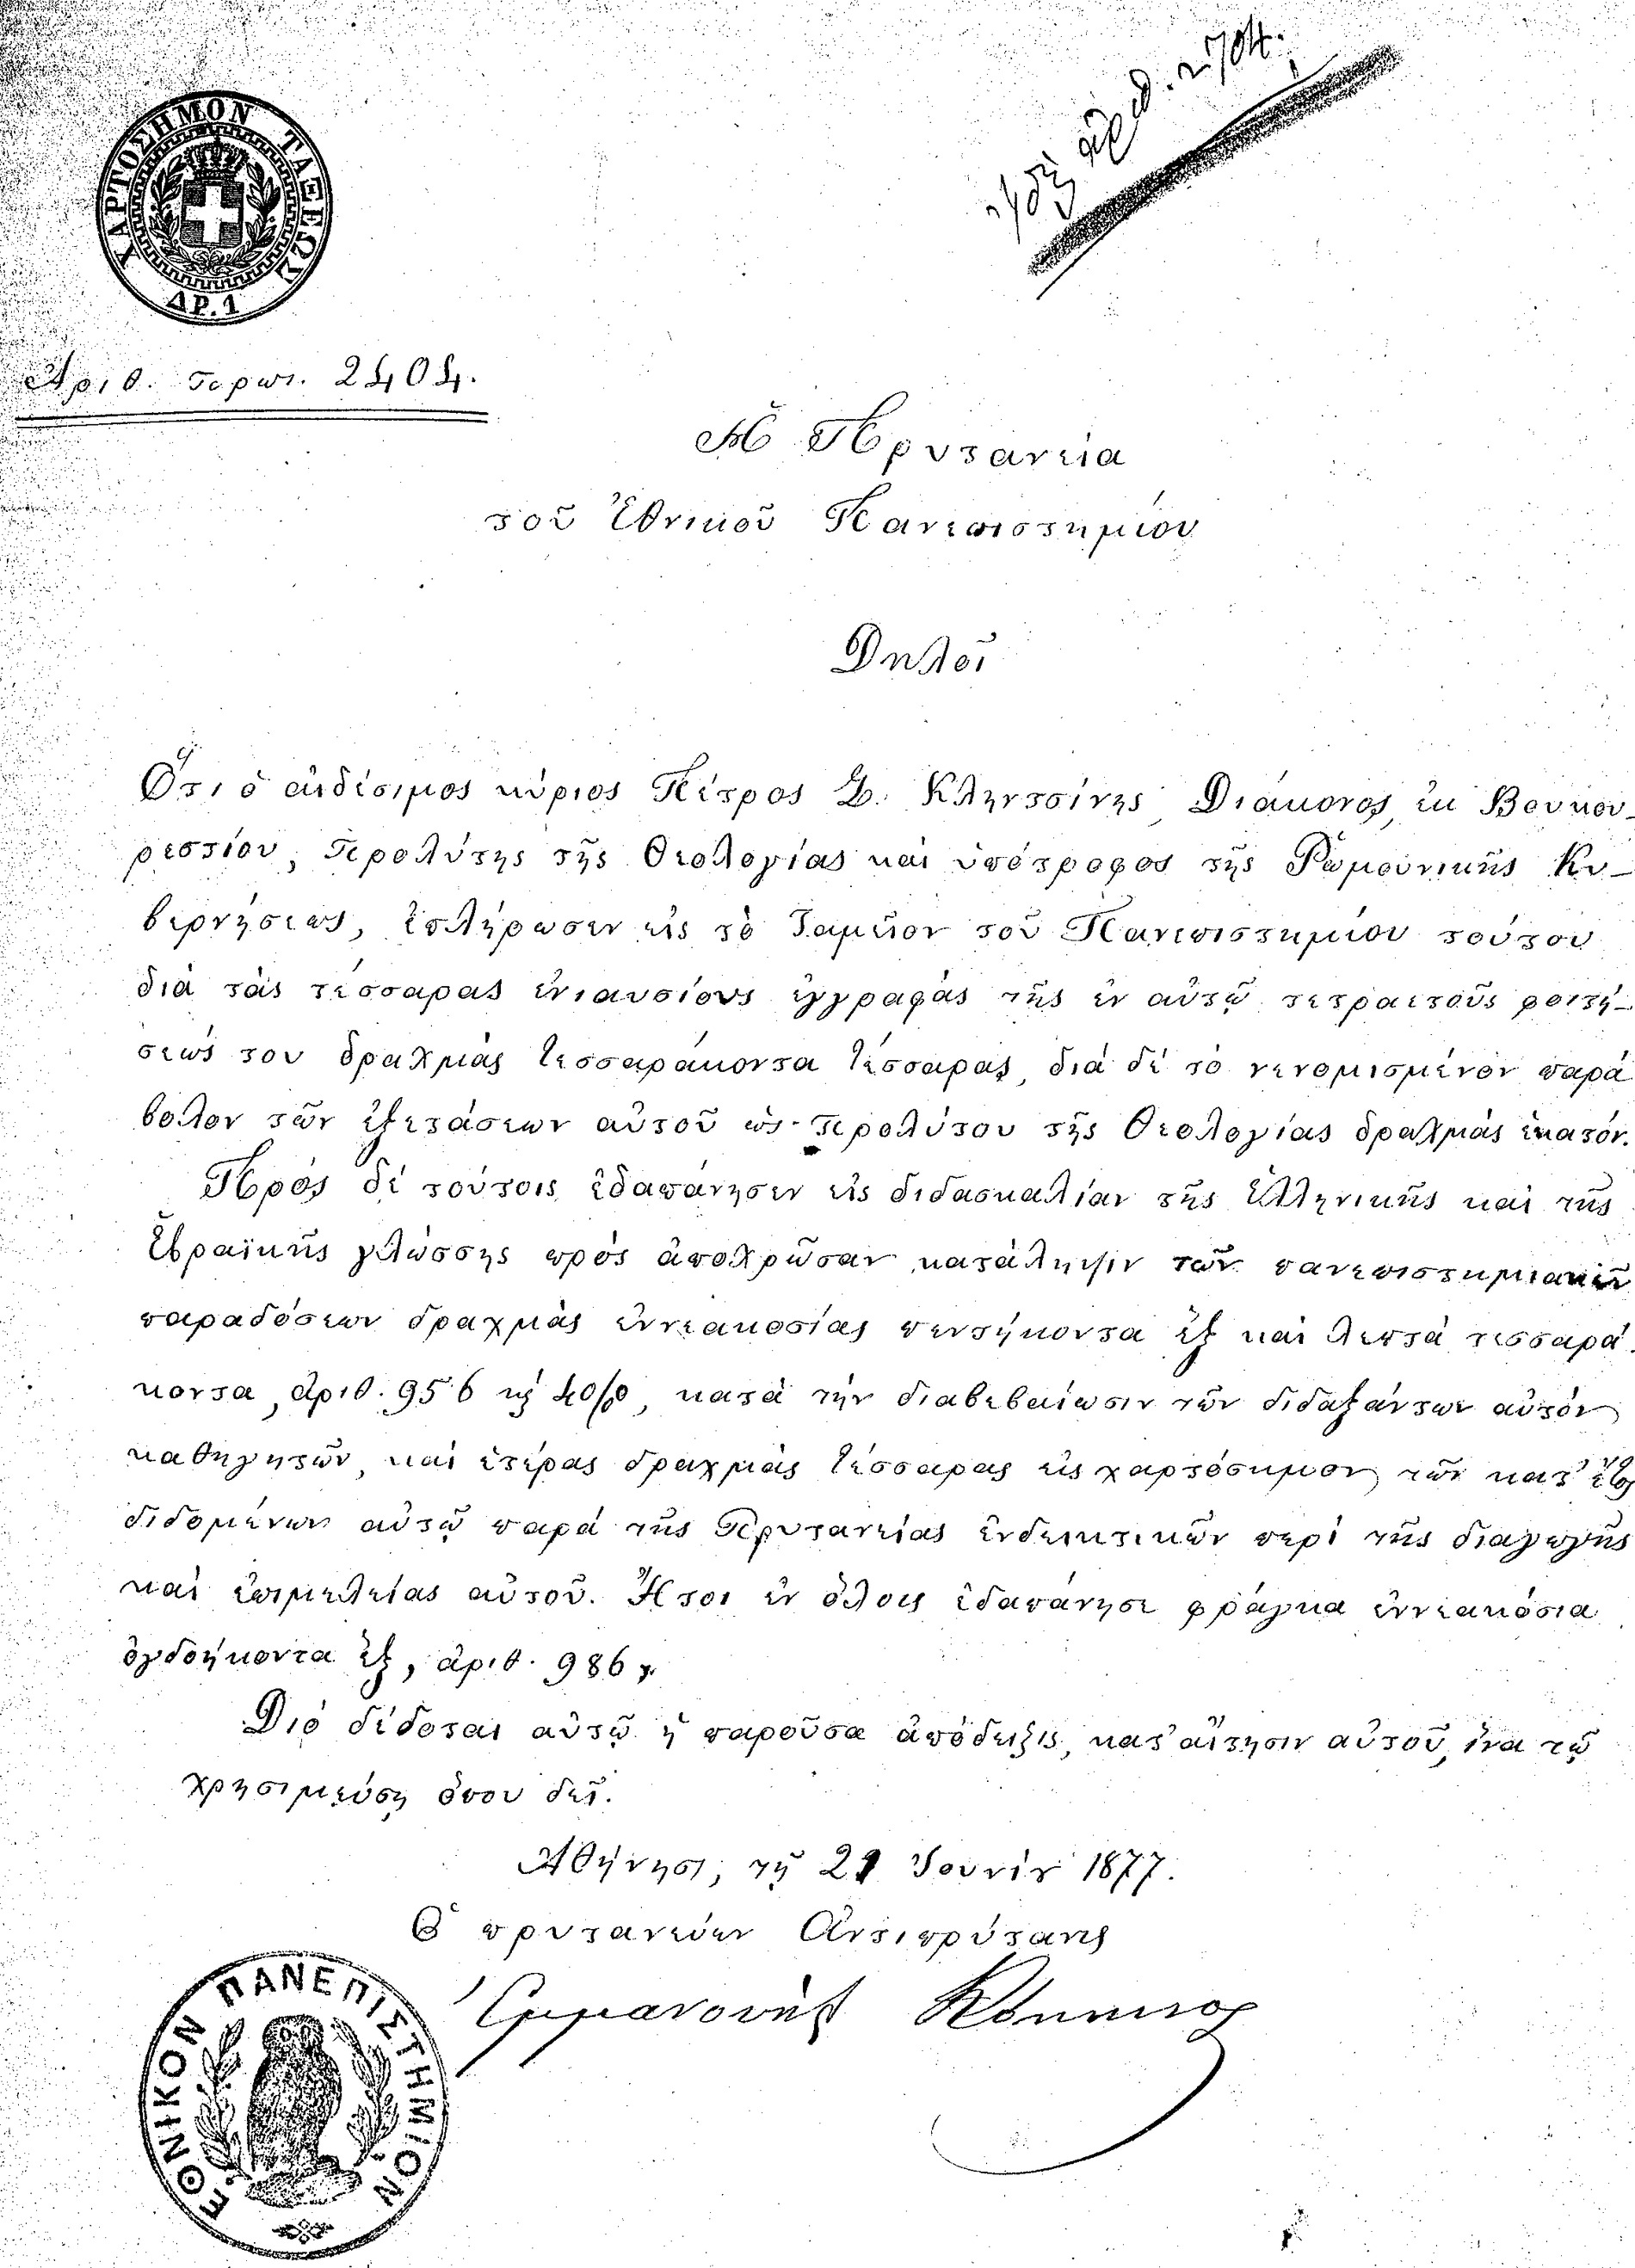 ΧΑΡΤΟΣΗΜΟΝ ΤΑΞΕΩΣ
ΔΡ. 1
Ἀριθ. πρωτ. 2404.
Ἡ Πρυτανεία
τοῦ Ἐθνικοῦ Πανεπιστημίου
Δηλοῖ
Ὅτι ὁ αἰδέσιμος κύριος Πέτρος Δ. Κληντσίνης, Διάκονος, ἐκ Βουκου-
ρεστίου, προλύτης τῆς Θεολογίας καὶ ὑπότροφος τῆς Ρωμουνικῆς Κυ-
βερνήσεως, ἐπλήρωσεν εἰς τὸ Ταμεῖον τοῦ Πανεπιστημίου τούτου
διὰ τὰς τέσσαρας ἐνιαυσίους ἐγγραφὰς τῆς ἐν αὐτῷ τετραετοῦς φοιτή-
σεώς του δραχμὰς τεσσαράκοντα τέσσαρας, διὰ δὲ τὸ νενομισμένον παρά
βολον τῶν ἐξετάσεων αὐτοῦ ὡς προλύτου τῆς Θεολογίας δραχμὰς ἑκατόν.
Πρὸς δὲ τούτοις ἐδαπάνησεν εἰς διδασκαλίαν τῆς Ἑλληνικῆς καὶ τῆς
Ἑβραϊκῆς γλώσσης πρὸς ἀποχρῶσαν κατάληψιν τῶν πανεπιστημιακῶν
παραδόσεων δραχμὰς ἐννεακοσίας πεντήκοντα ἓξ καὶ λεπτὰ τεσσαρά
κοντα, ἀριθ. 956 κ 40/0, κατὰ τὴν διαβεβαίωσιν τῶν διδαξάντων αὐτὸν
καθηγητῶν, καὶ ἑτέρας δραχμὰς τέσσαρας εἰς χαρτόσημον τῶν κατ' ἔτος
διδομένων αὐτῷ παρὰ τῆς Πρυτανείας ἐνδεικτικῶν περὶ τῆς διαγωγῆς
καὶ ἐπιμελείας αὐτοῦ. Ἤτοι ἐν ὅλοις ἐδαπάνησε φράγκα ἐννεακόσια
ὀγδοήκοντα ἓξ, ἀριθ. 986
Διὸ δίδοται αὐτῷ ἡ παροῦσα ἀπόδειξις, κατ' αἴτησιν αὐτοῦ, ἵνα τῷ
χρησιμεύσῃ ὅπου δεῖ.
Ἀθήνησι, τῇ 21 Ἰουνίου 1877.
Ὁ πρυτανεύων Ἀντιπρύτανις
Ἐμμανουὴλ Κόκκινος
ΕΘΝΙΚΟΝ ΠΑΝΕΠΙΣΤΗΜΙΟΝ